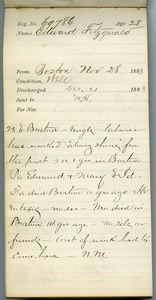 Reg. No. 69786 Age 28
Name Edward Fitzgerald
From Boston Nov 28 1883
Condition, Well
Discharged Dec, 21 1883
Sent to N.H.
For
N E Boston - single -
has worked along shore for
the past 7 or 8 yrs in Boston
Pa Edmund & Mary E &d.
Fa died Boston 11 yrs ago
- Mo died in
Boston 14 yrs ago - No rela or
friends - Out of work had to
come here - N.M.